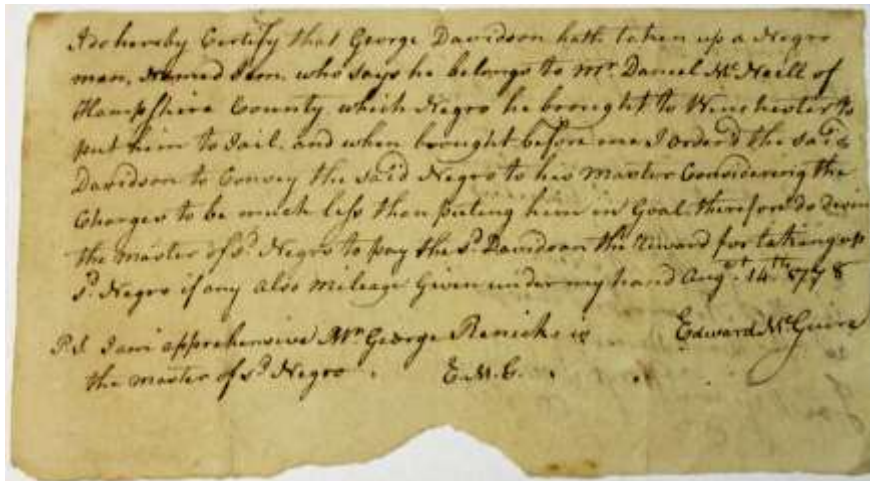 I do hereby Certify that George Davidson hath taken up a Negro
man, Named Sam, who says he belongs to Mr. Daniel McNeill of
Hampshire County which Negro he brought to Winchester to
put him to Jail, and when brought before me I orderd the said
Davidson to Convey the said Negro to his Master Considering the
Charges to be much less than puting him in Goal therefore do
the master of sd. Negro to pay the sd. Davidson the Reward for taking up
sd. Negro if any also Mileage Given under my hand Augst. 14th 1778
P.S. I am apprehensive Mr. George Renicks is Edward McGuire
the master of sd Negro. E.M.G.